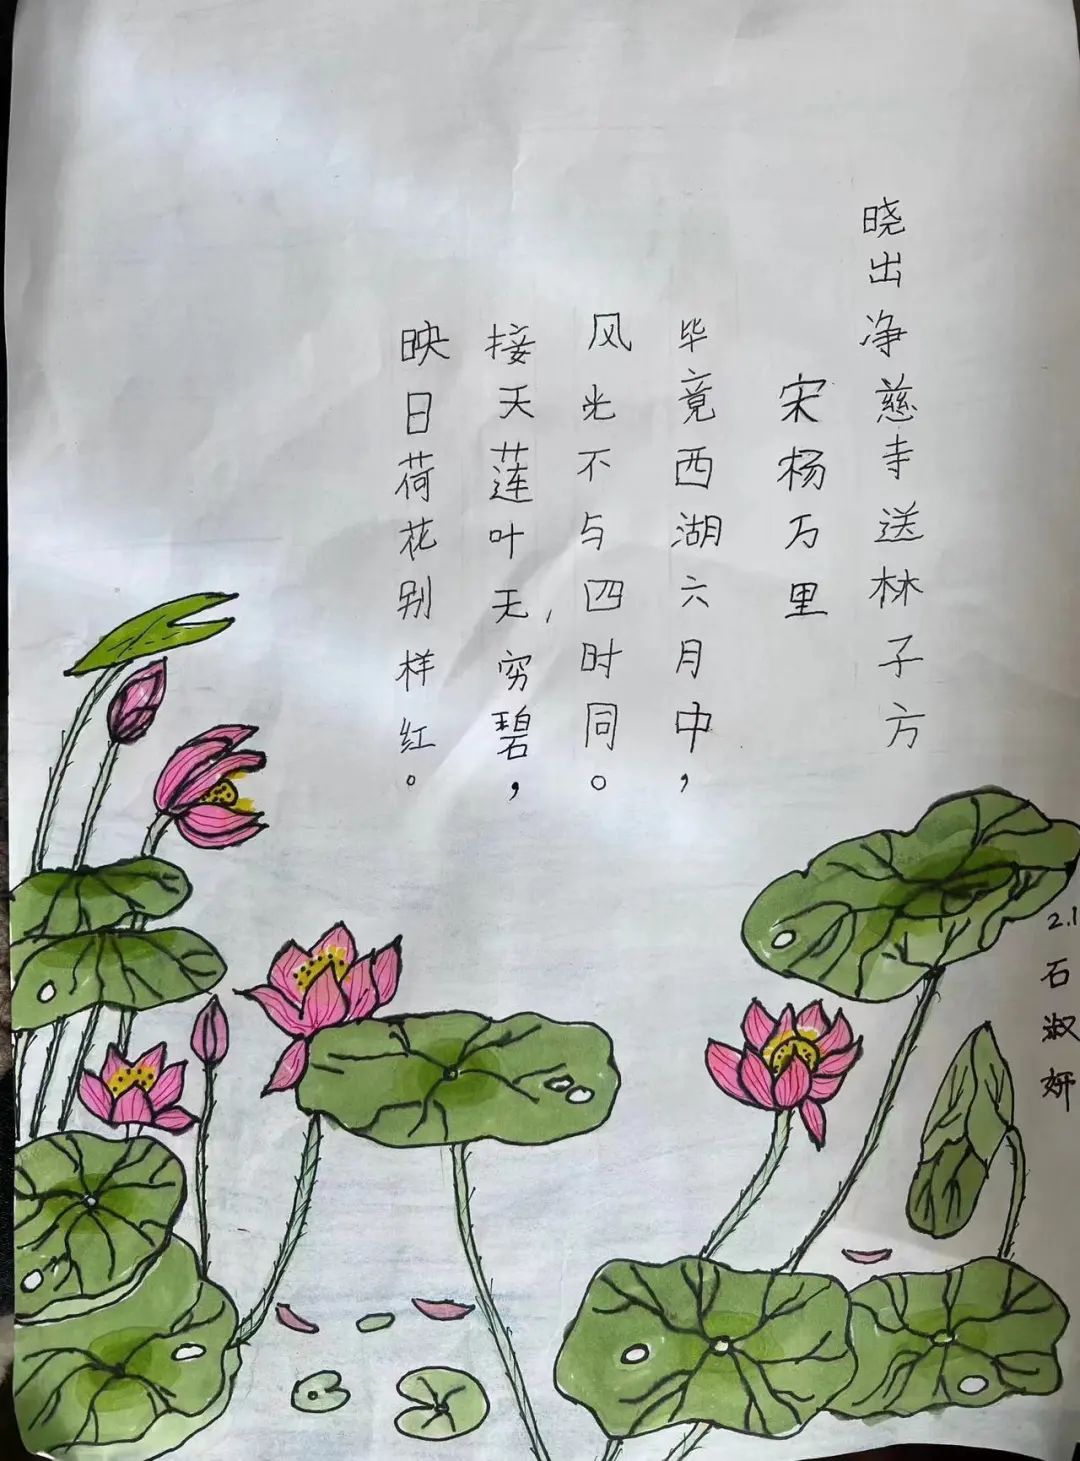 晓出净慈寺送林子方
宋杨万里
毕竟西湖六月中，
风光不与四时同。
接天莲叶无穷碧，
映日荷花别样红。
2.1
石淑妍